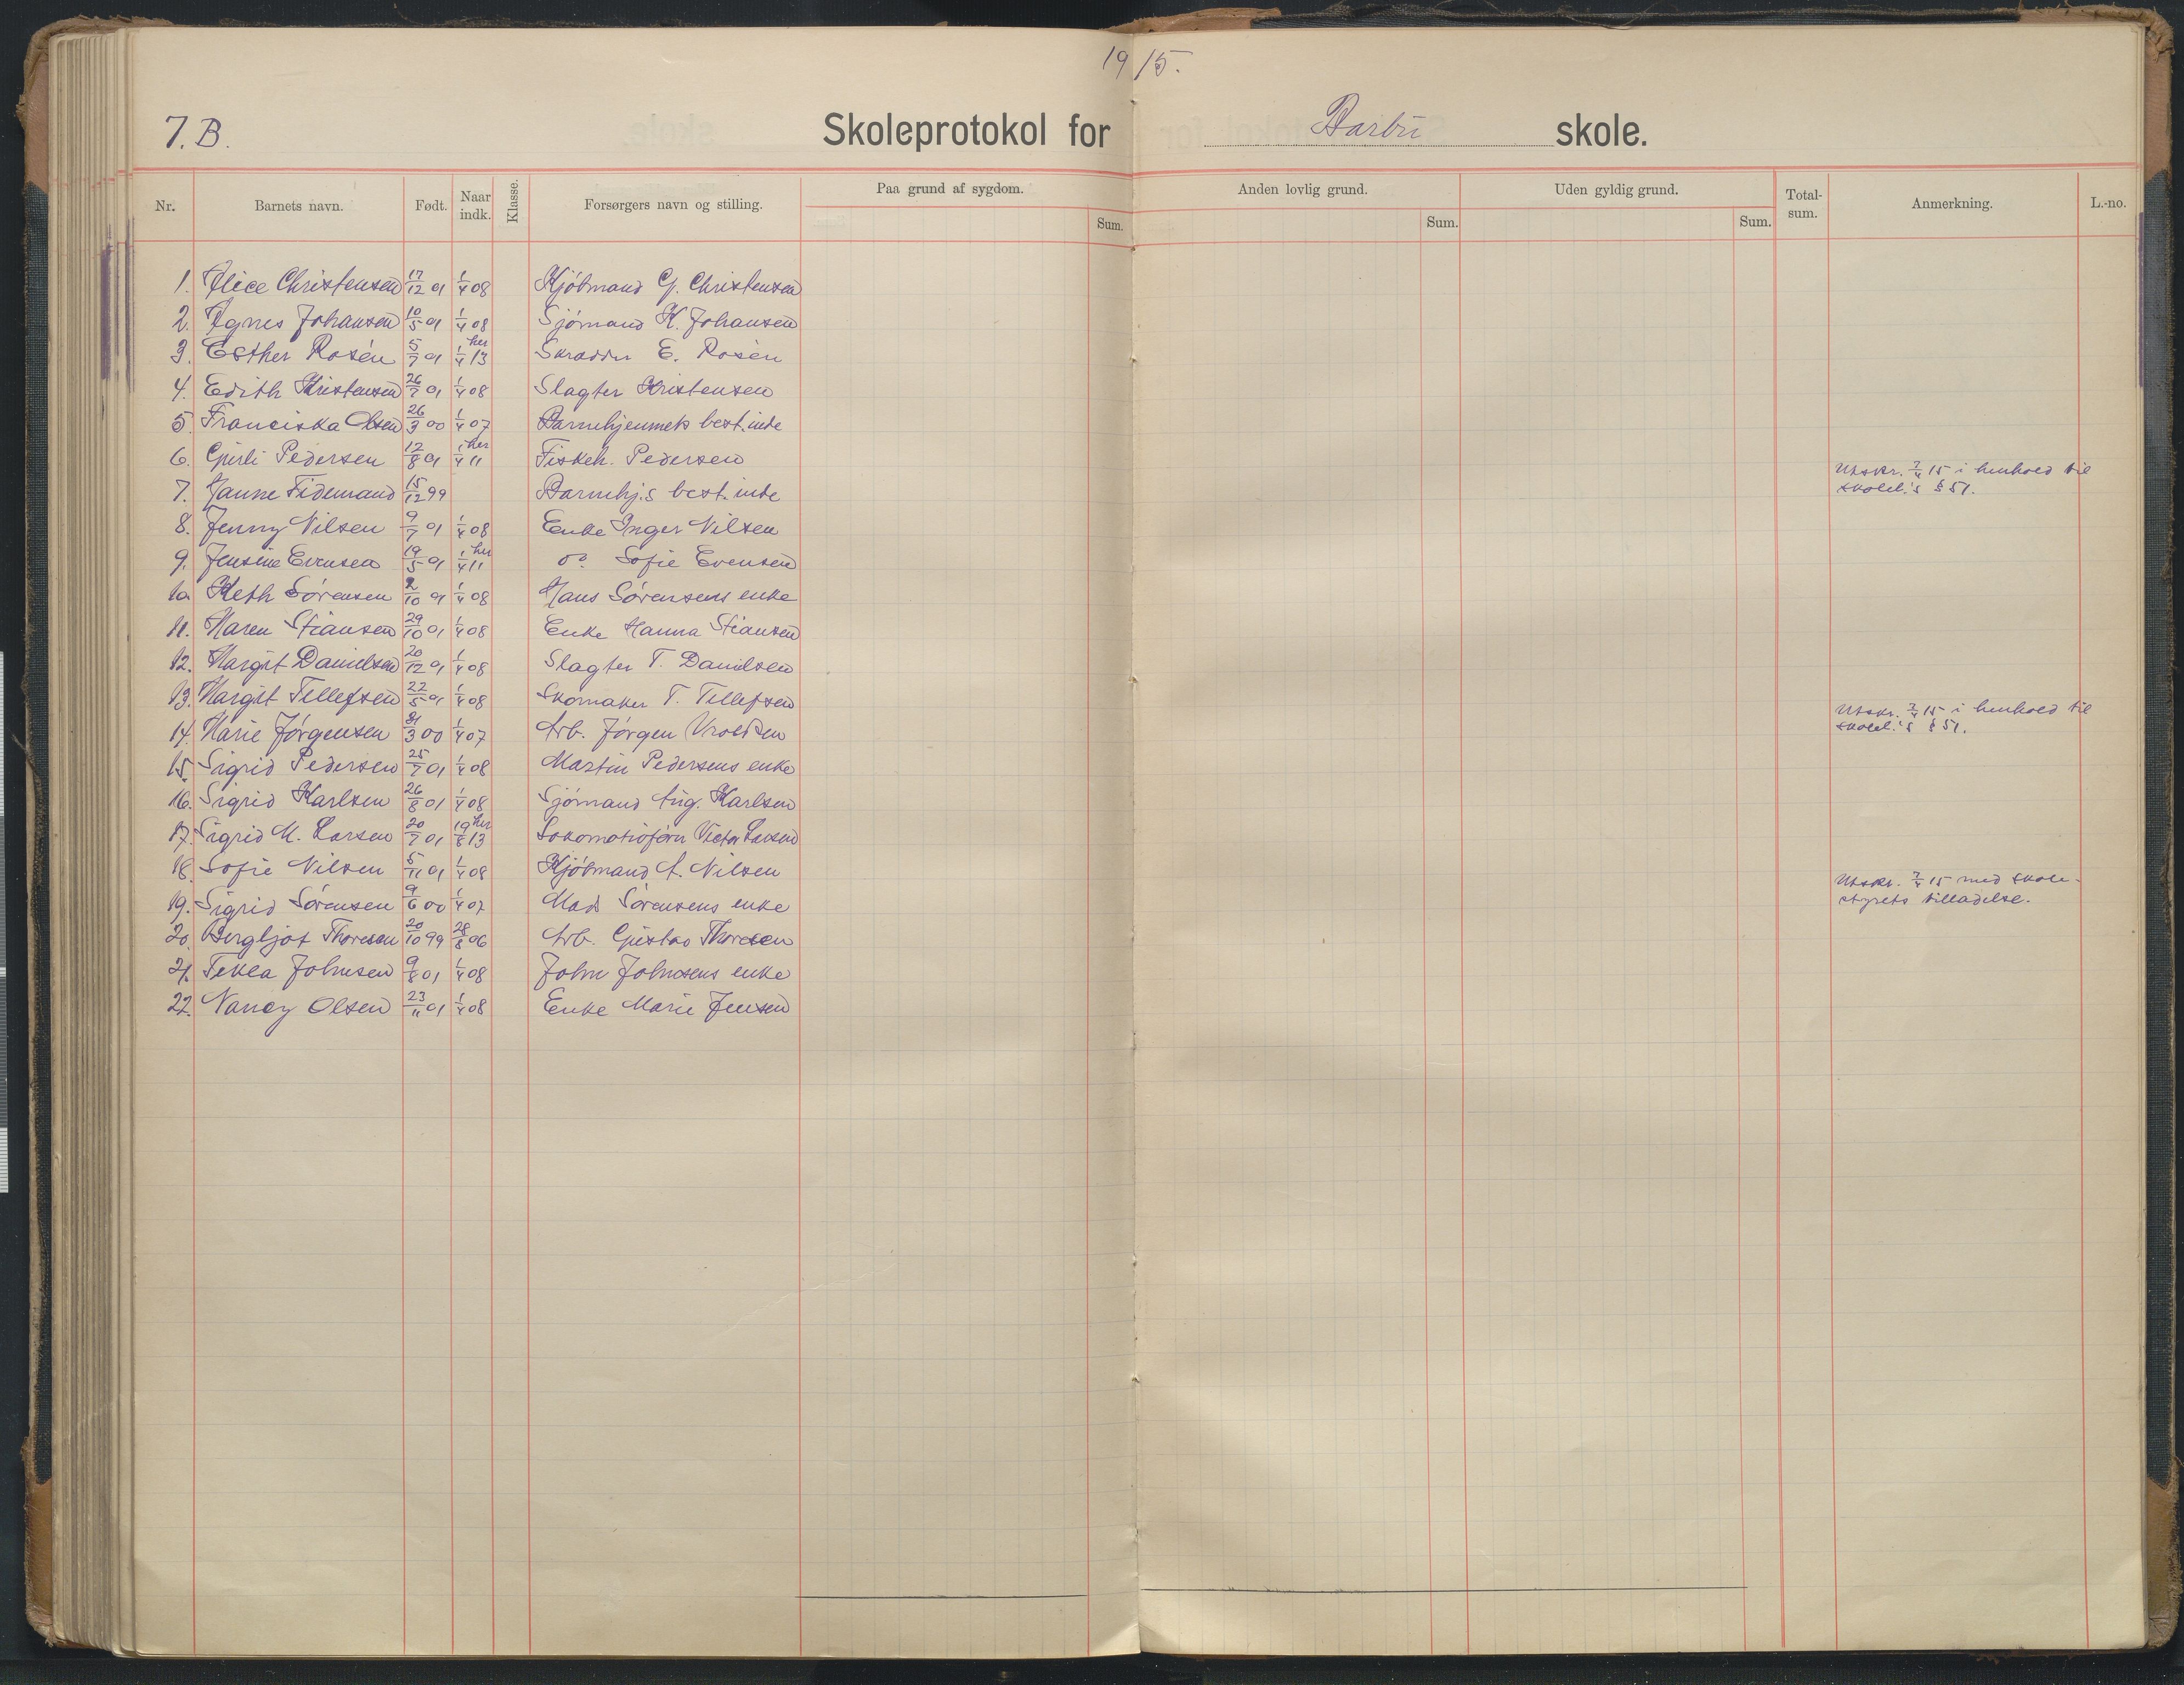 1915.
7. B.
Skoleprotokol for Barbu skole.
Nr. Barnets navn. Født. Naar indk. Klasse. Forsørgers navn og stilling. Paa grund af sygdom. Sum. Anden lovlig grund. Sum. Uden gyldig grund. Sum. Total-sum. Anmerkning. L.-no.
1. Alice Christensen 17/12 01 1/4 08 Kjøbmand G. Christensen
2. Agnes Johansen 10/5 01 1/4 08 Sjømand K. Johansen
3. Esther Rosén 5/7 01 her 1/4 13 Skrædder E. Rosén
4. Edith Kristensen 26/7 01 1/4 08 Slagter Kristensen
5. Franciska Olsen 26/3 00 1/4 07 Barnehjemmets best.inde
6. Gurli Pedersen 12/8 01 her 1/4 11 Fiskeh. Pedersen
7. Hanne Fidemand 15/12 99 Barnehj.s best.inde Utskr. 7/4 15 i henhold til
skolel.'s § 51.
8. Jenny Nilsen 9/7 01 1/4 08 Enke Inger Nilsen
9. Jensine Evensen 19/5 01 her 1/4 11 do Sofie Evensen
10. Keth Sørensen 2/10 01 1/4 08 Hans Sørensens enke
11. Karen Stiansen 29/10 01 1/4 08 Enke Hanna Stiansen
12. Margit Danielsen 20/12 01 1/4 08 Slagter T. Danielsen
13. Margit Tellefsen 22/5 01 1/4 08 Skomaker T. Tellefsen
14. Marie Jørgensen 31/3 00 1/4 07 Arb. Jørgen Vroldsen Utskr. 7/4 15 i henhold til
skolel.'s § 51.
15. Sigrid Pedersen 25/7 01 1/4 08 Martin Pedersens enke
16. Sigrid Karlsen 26/8 01 1/4 08 Sjømand Aug. Karlsen
17. Sigrid M. Larsen 20/7 01 her 19/8 13 Lokomotivfører Victor Larsen
18. Sofie Nilsen 5/11 01 1/4 08 Kjøbmand A. Nilsen
19. Sigrid Sørensen 9/6 00 1/4 07 Mads Sørensens enke Utskr. 7/4 15 med skole-
styrets tilladelse.
20. Bergljot Thoresen 20/10 99 28/8 06 Arb. Gustav Thoresen
21. Tekla Johnsen 9/8 01 1/4 08 John Johnsens enke
22. Nancy Olsen 23/11 01 1/4 08 Enke Marie Jensen